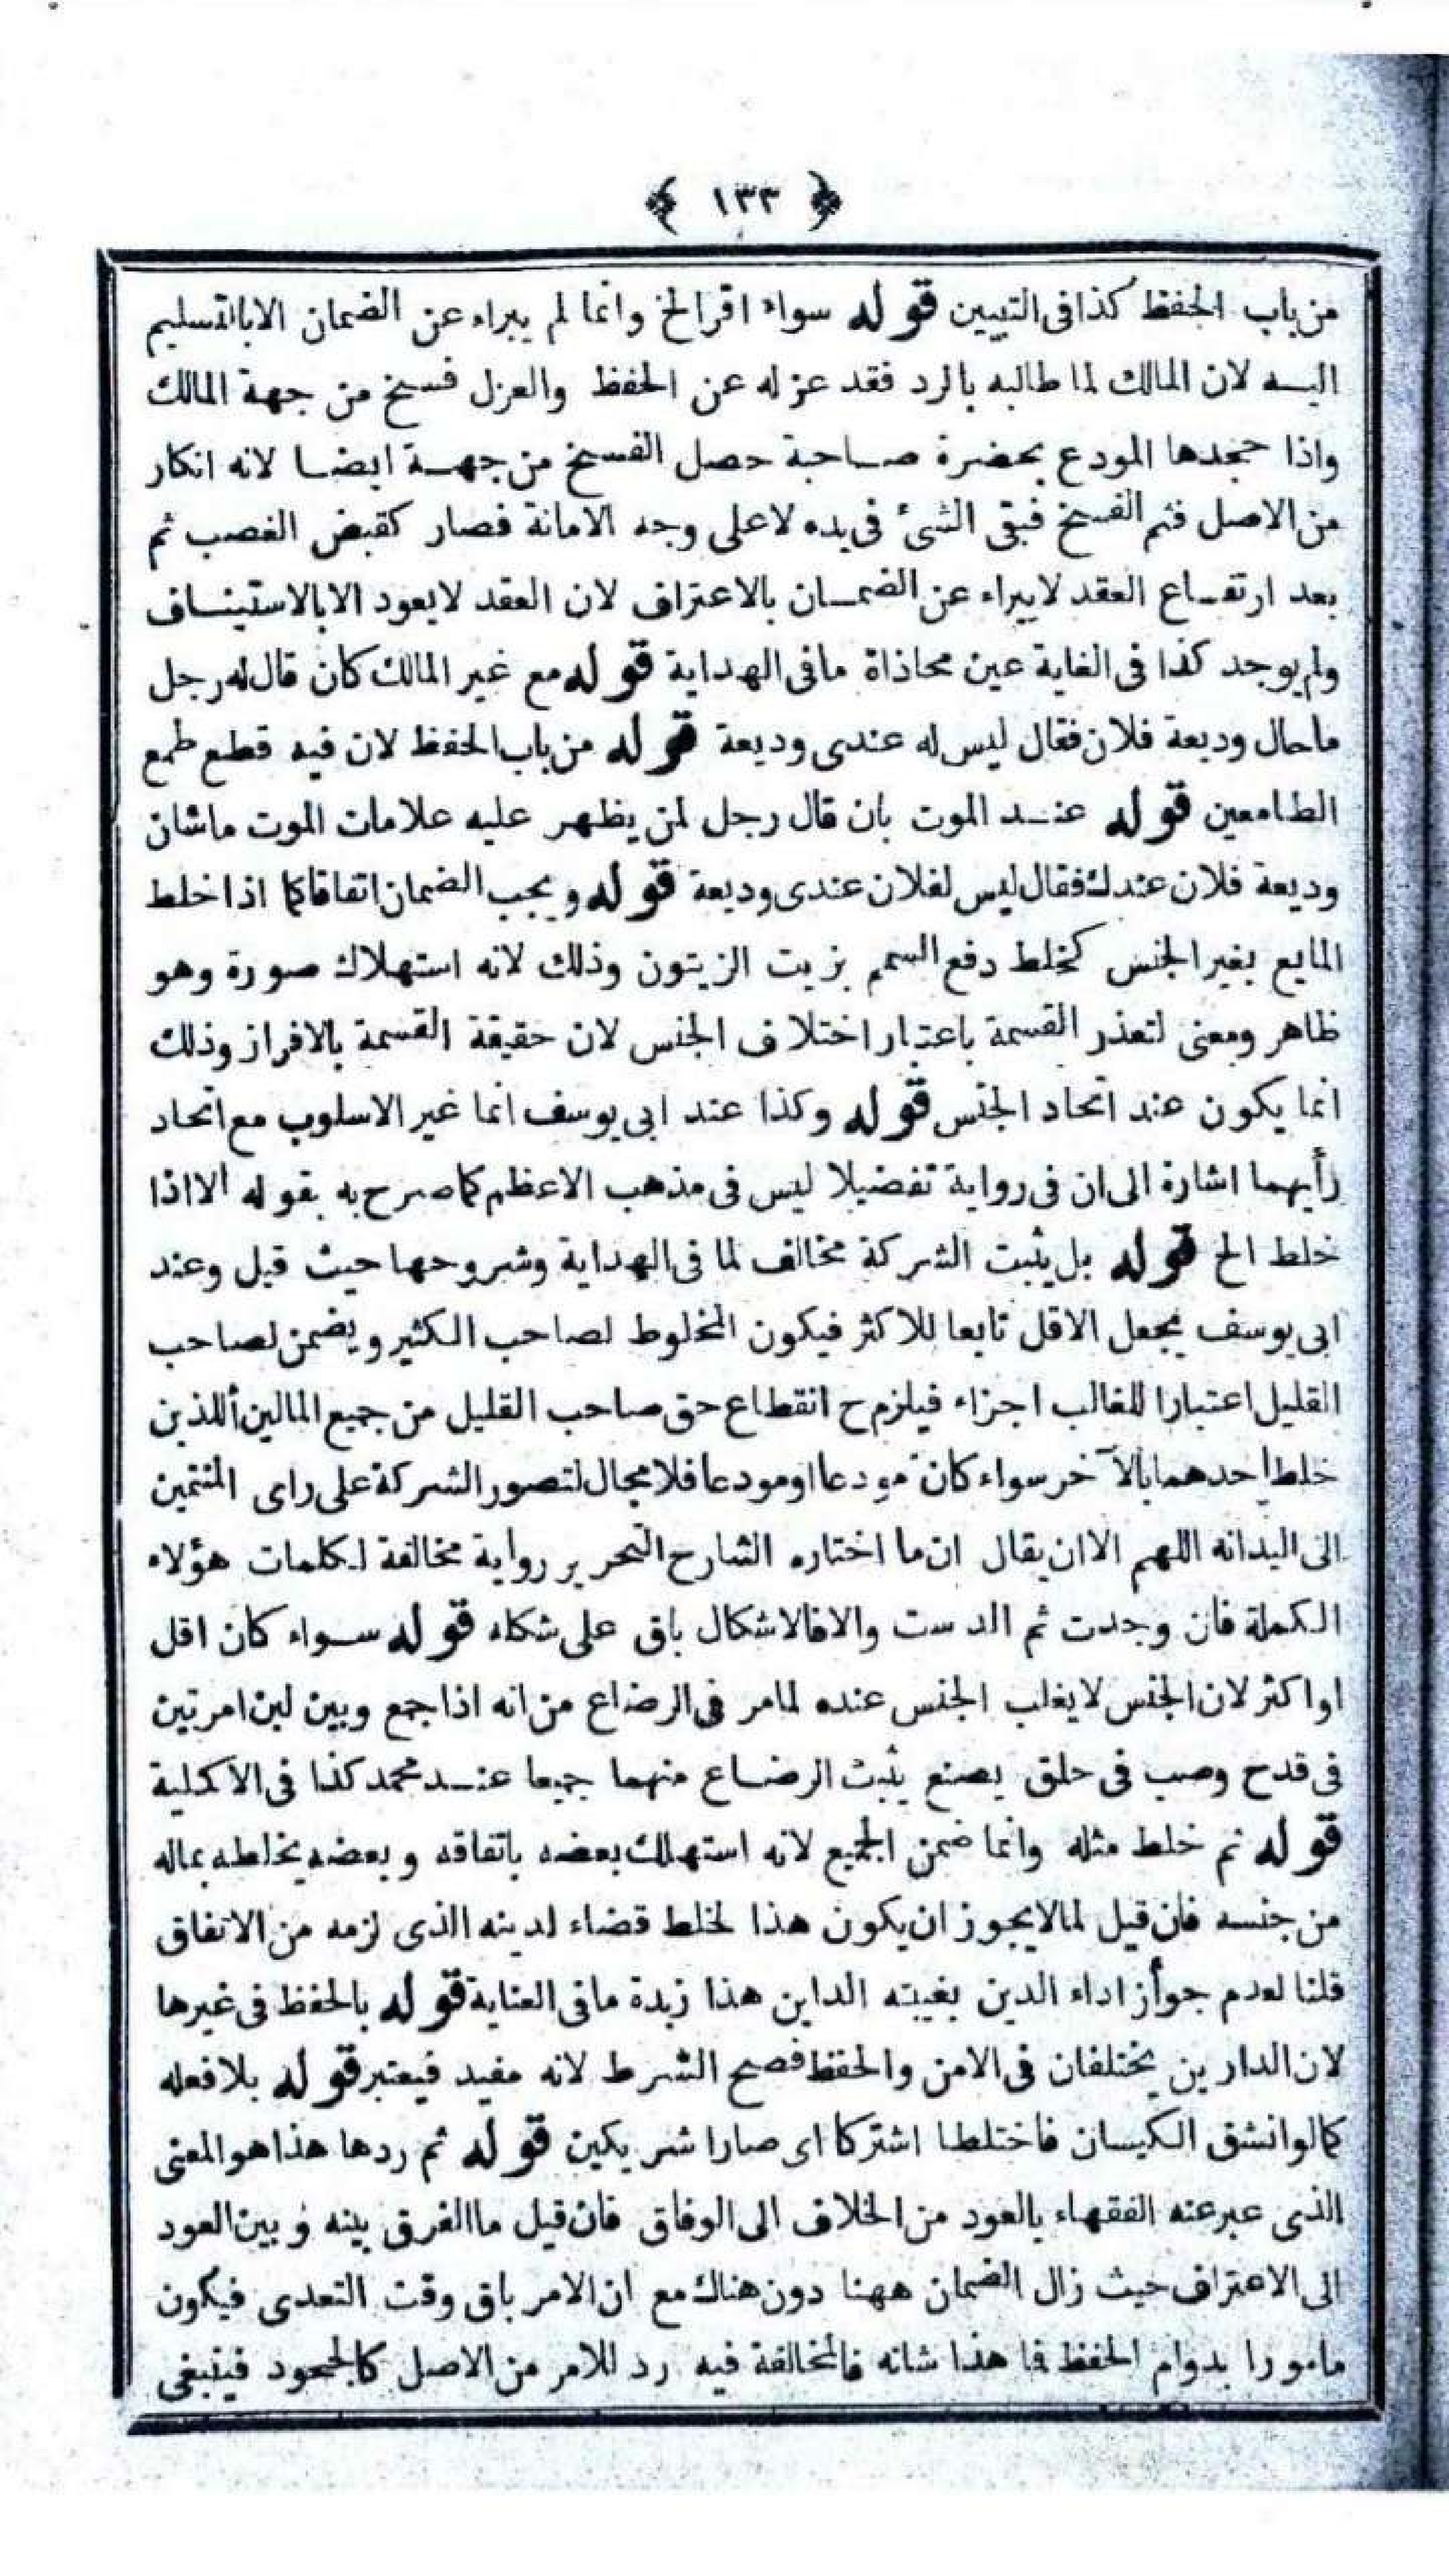 ﴿ ١٣٣ ﴾
من باب الحفظ كذا فى التبيين قوله سواء اقر الخ وانما لم يبراء عن الضمان الا بالتسليم
اليه لان المالك لما طالبه بالرد فقد عزله عن الحفظ والعزل فسخ من جهة المالك
واذا جحدها المودع بحضرة صاحبة حصل الفسخ من جهة ايضا لانه انكار
من الاصل فتم الفسخ فبقى الشئ فى يده لا على وجه الامانة فصار كقبض الغصب ثم
بعد ارتفاع العقد لا يبراء عن الضمان بالاعتراف لان العقد لا يعود الا بالاستيناف
ولم يوجد كذا فى الغاية عين محاذاة ما فى الهداية قوله مع غير المالك كان قال له رجل
ما حال وديعة فلان فقال ليس له عندى وديعة قوله من باب الحفظ لان فيه قطع طمع
الطامعين قوله عند الموت بان قال رجل لمن يظهر عليه علامات الموت ما شان
وديعة فلان عندك فقال ليس لفلان عندى وديعة قوله ويجب الضمان اتفاقا كما اذا خلط
المايع بغير الجنس كخلط دفع السمم بزيت الزيتون وذلك لانه استهلاك صورة وهو
ظاهر ومعنى لتعذر القسمة باعتبار اختلاف الجنس لان حقيقة القسمة بالافراز وذلك
انما يكون عند اتحاد الجنس قوله وكذا عند ابى يوسف انما غير الاسلوب مع اتحاد
رأيهما اشارة الى ان فى رواية تفضيلا ليس فى مذهب الاعظم كما صرح به بقوله الا اذا
خلط الخ قوله بل يثبت الشركة مخالف لما فى الهداية وشروحها حيث قيل وعند
ابى يوسف يجعل الاقل تابعا للاكثر فيكون المخلوط لصاحب الكثير ويضمن لصاحب
القليل اعتبارا للغالب اجزاء فيلزم ح انقطاع حق صاحب القليل من جميع المالين أللذين
خلط احدهما بالآخر سواء كان مودعا او مودعا فلا مجال لتصور الشركة على راى المنتمين
الى اليد انه اللهم الا ان يقال ان ما اختاره الشارح النحرير رواية مخالفة لكلمات هؤلاء
الكملة فان وجدت ثم الدست والا فالاشكال باق على شكله قوله سواء كان اقل
او اكثر لان الجنس لا يغلب الجنس عنده لما مر فى الرضاع من انه اذا جمع وبين لبن امرتين
فى قدح وصب فى حلق يصنع يثبت الرضاع منهما جميعا عند محمد كذا فى الاكملية
قوله ثم خلط مثله وانما ضمن الجميع لانه استهلك بعضه باتفاقه وبعضه بخلطه بماله
من جنسه فان قيل لما لا يجوز ان يكون هذا لخلط قضاء لدينه الذى لزمه من الانفاق
قلنا لعدم جواز اداء الدين بغيبته الداين هذا زبدة ما فى العناية قوله بالحفظ فى غيرها
لان الدارين يختلفان فى الامن والحفظ فصح الشرط لانه مفيد فيعتبر قوله بلا فعله
كما لو انشق الكيسان فاختلطا اشتركا اى صارا شريكين قوله ثم ردها هذا هو المعنى
الذى عبر عنه الفقهاء بالعود من الخلاف الى الوفاق فان قيل ما الفرق بينه وبين العود
الى الاعتراف حيث زال الضمان ههنا دون هناك مع ان الامر باق وقت التعدى فيكون
مامورا بدوام الحفظ فما هذا شانه فالمخالفة فيه رد للامر من الاصل كالجحود فينبغى